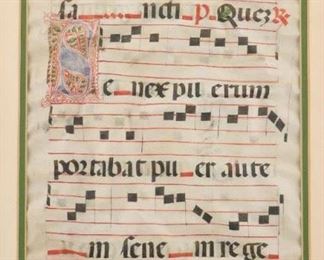 sa_ _ _ _ncti_p. Quez R
S
e_nex pu erum
portabat pu_er aute
_m sene_m rege_